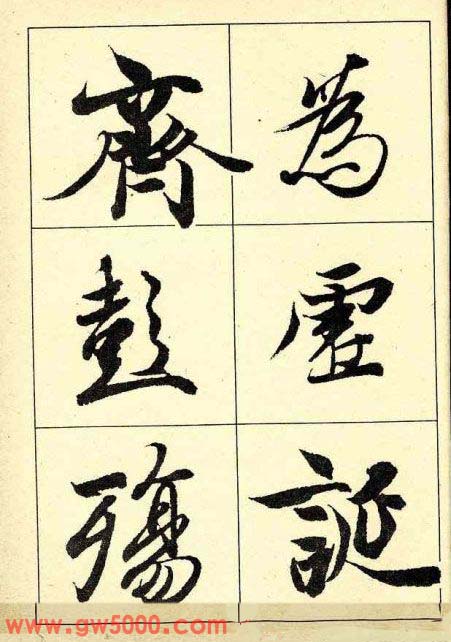 為虛誕
齊彭殤
www.gw5000.com